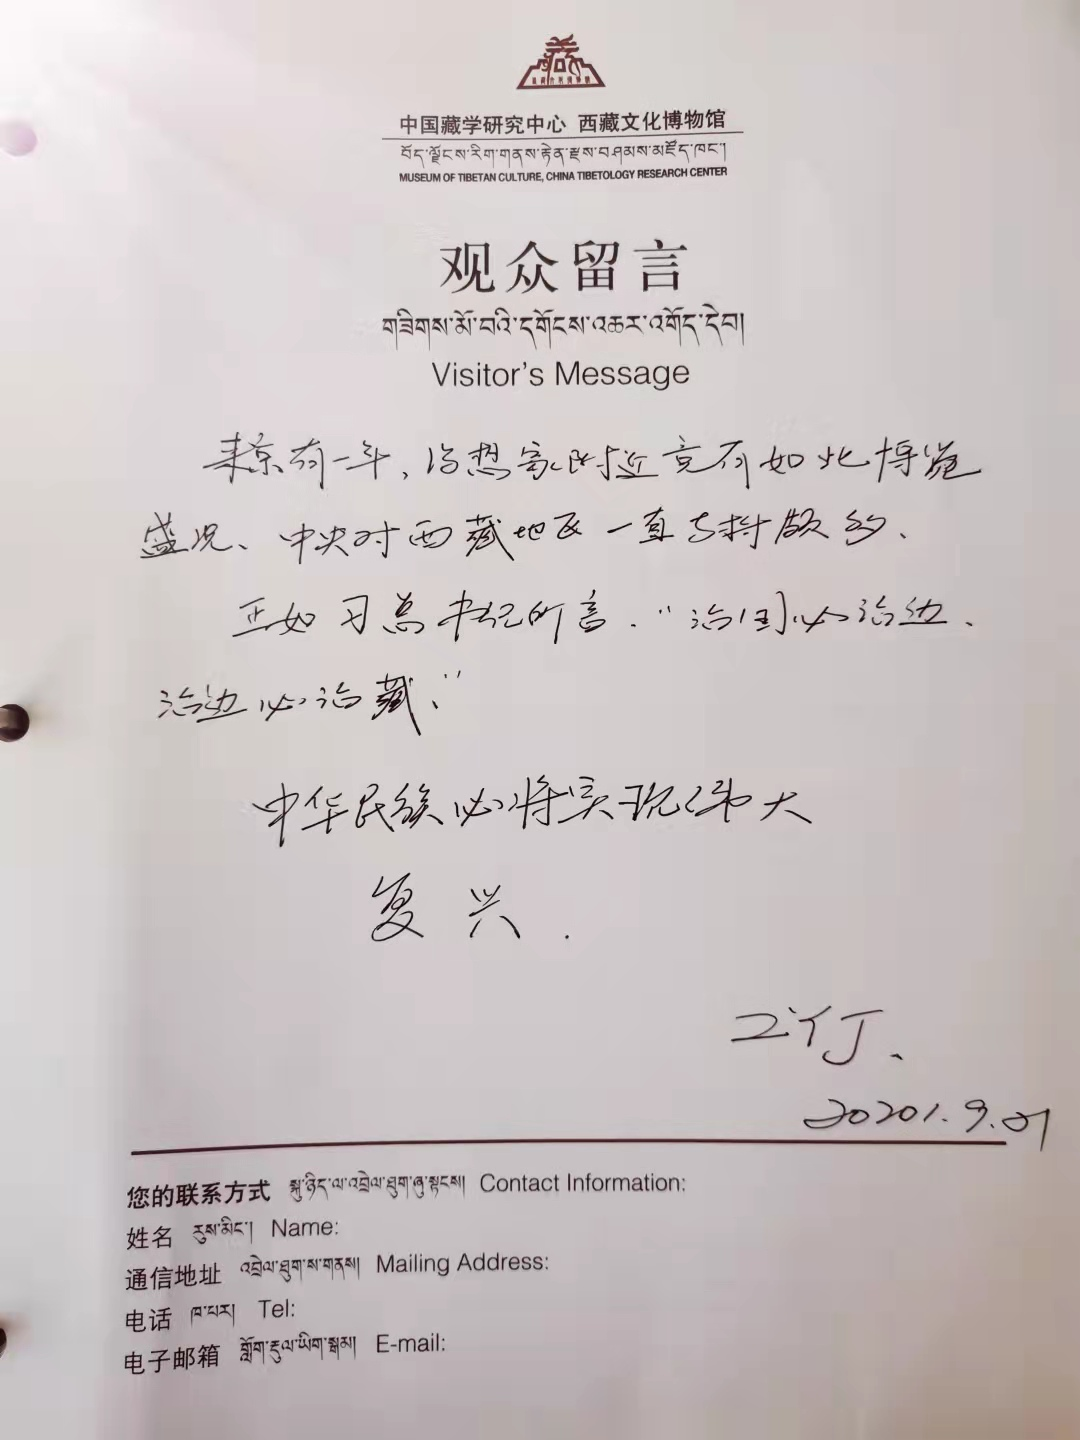 中国藏学研究中心 西藏文化博物馆
བོད་ལྗོངས་རིག་གནས་རྟེན་རྫས་བཤམས་མཛོད་ཁང་།
MUSEUM OF TIBETAN CULTURE, CHINA TIBETOLOGY RESEARCH CENTER
观众留言
གཟིགས་མོ་བའི་དགོངས་འཆར་འགོད་དེབ།
Visitor's Message
来京有一年,没想家附近竟有如此博览
盛况、中央对西藏地区一直支持颇多、
正如习总书记所言."治国必治边、
治边必治藏、"
中华民族必将实现伟大
复兴.
20201.9.21
您的联系方式 སྐུ་ཉིད་ལ་འབྲེལ་ཐུག་ཞུ་སྟངས། Contact Information:
姓名 རུས་མིང་། Name:
通信地址 འབྲེལ་ཐུག་ས་གནས། Mailing Address:
电话 ཁ་པར། Tel:
电子邮箱 གློག་རྡུལ་ཡིག་སྒམ། E-mail: